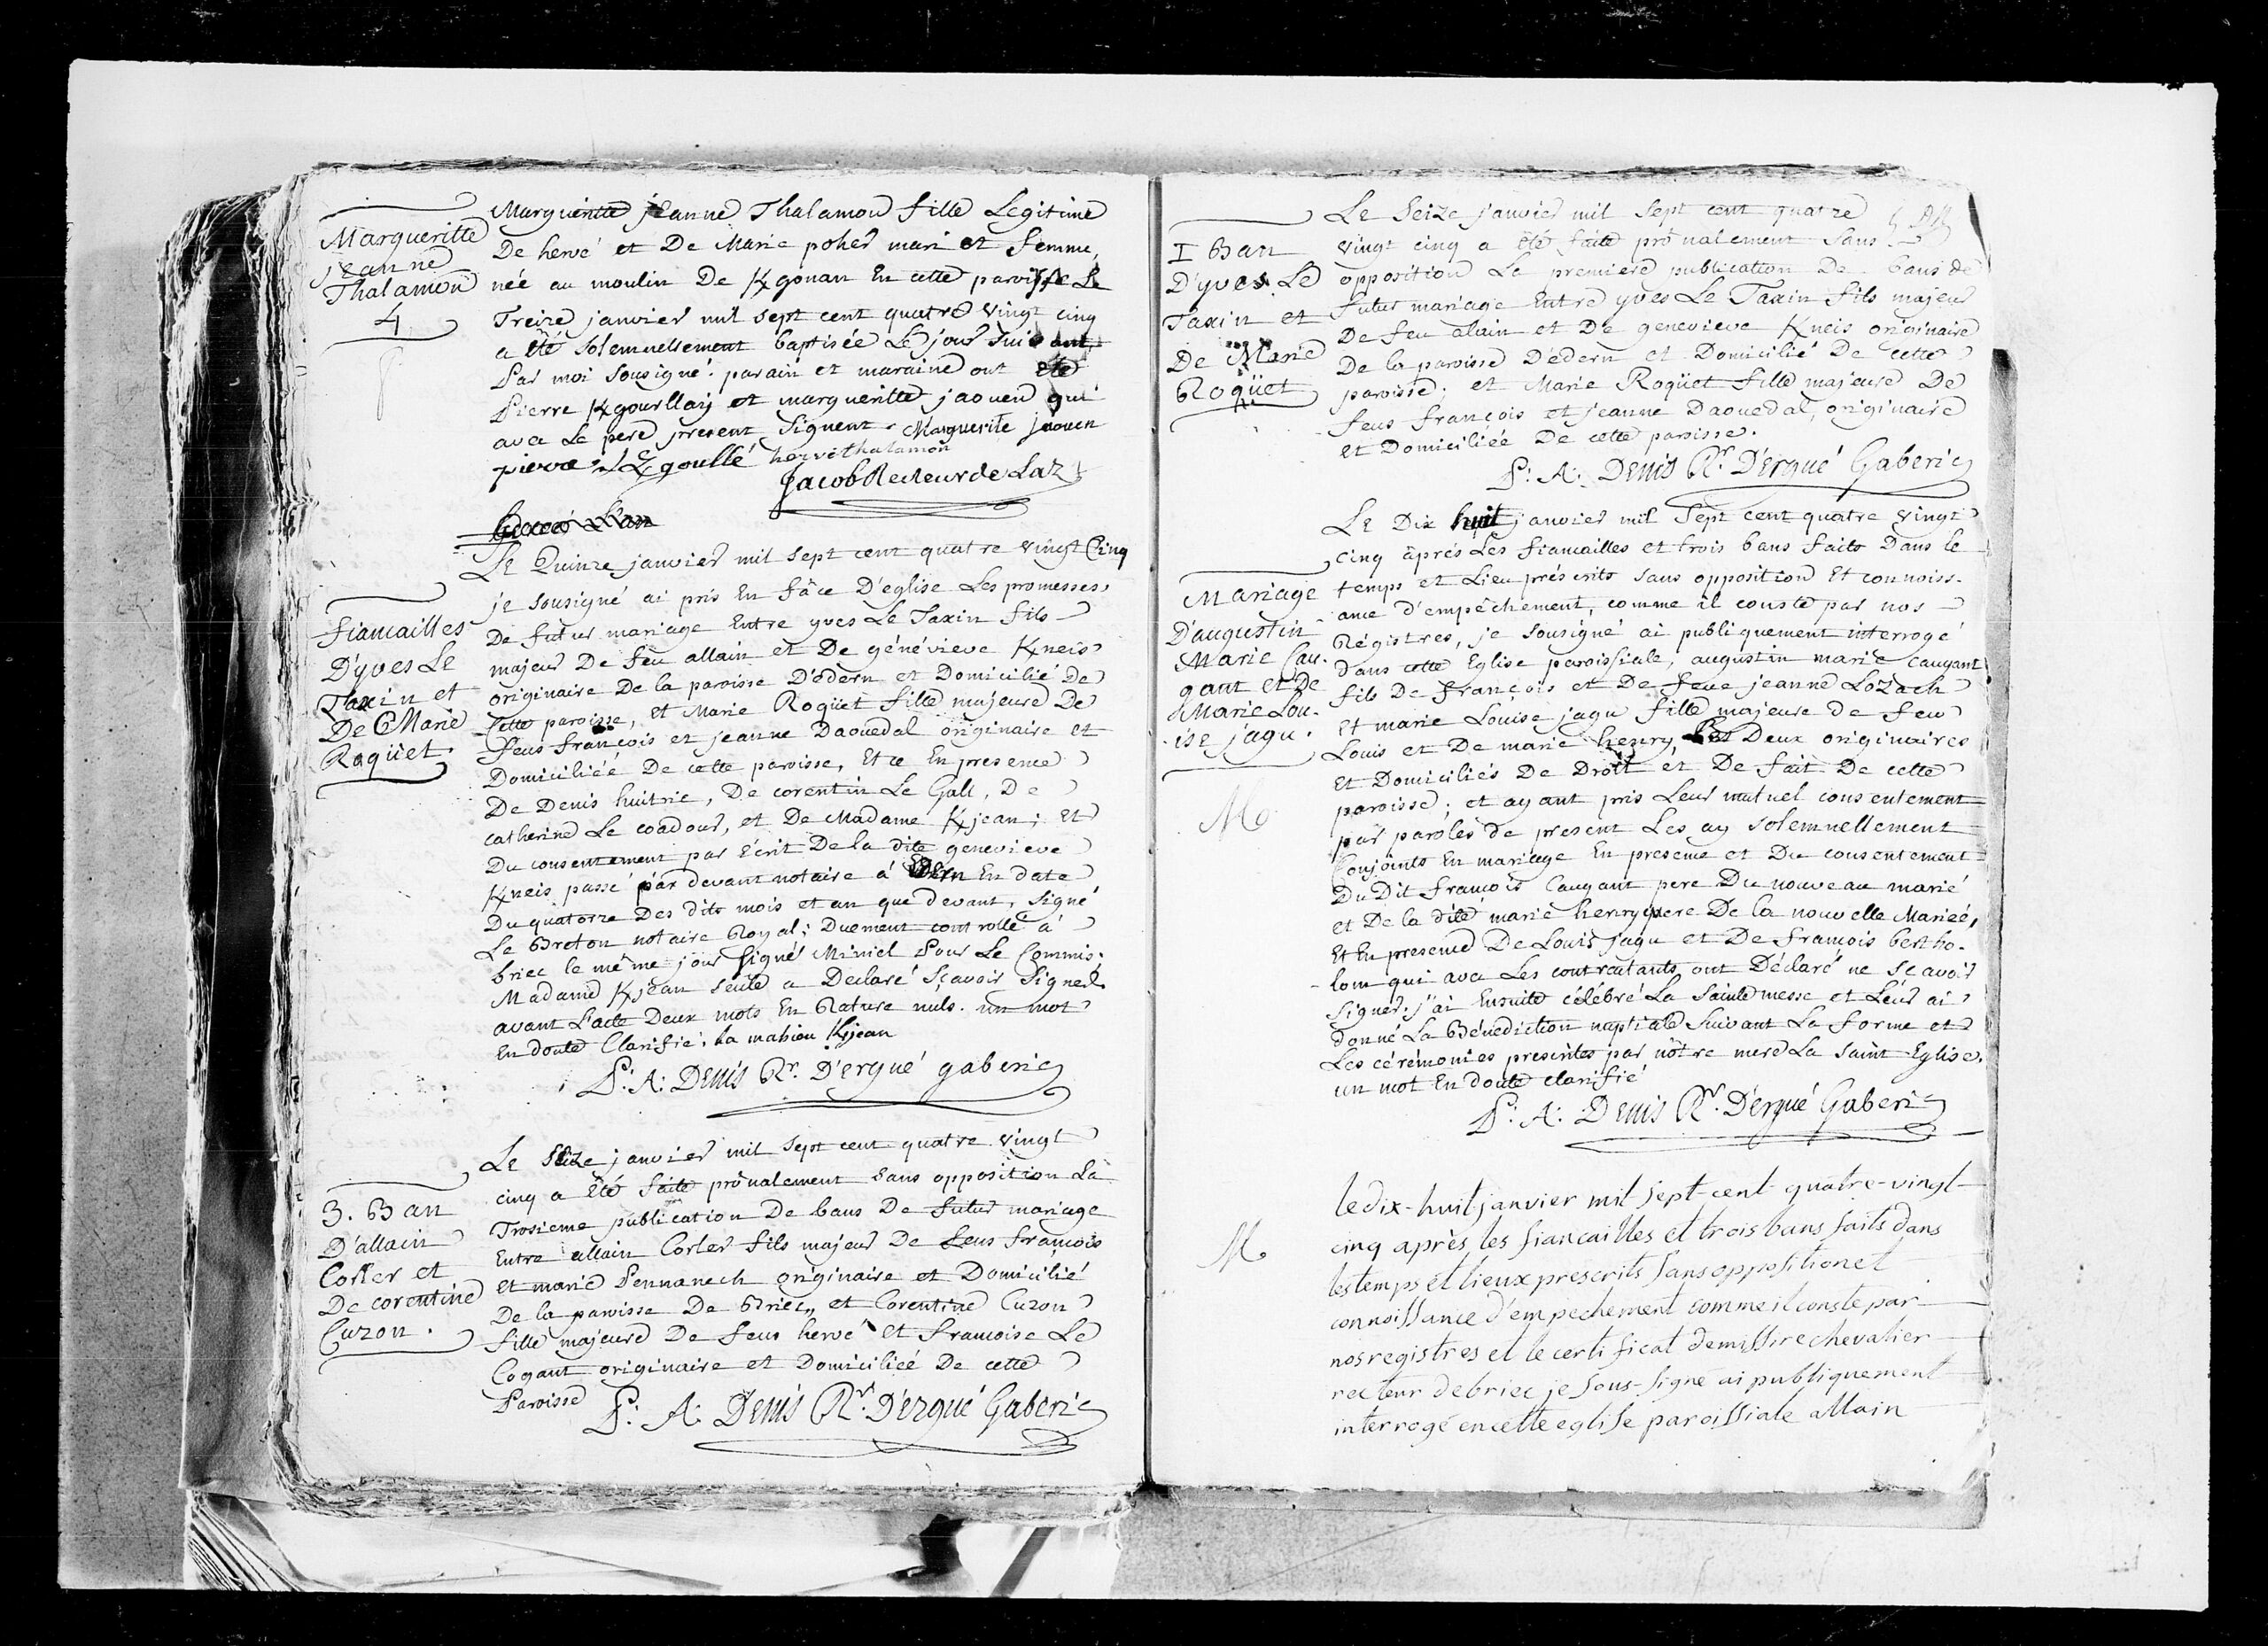 Margueritte
jeanne
Thalamon
4
Margueritte jeanne Thalamon fille Legitime
De hervé et De Marie poher mari et femme,
née au moulin De Kgonan En cette paroisse Le
Treize janvier mil sept cent quatre vingt cinq
a été solemnellement baptisée Le jour suivant
Par moi sousigné. parain et maraine ont été
Pierre Kgourllay et margueritte jaouen qui
avec Le pere present Signent. Marguerite jaouen
pierre goullé hervé thalamon
Jacob Recteur de Laz
Fiancailles
D'yves Le
Taxin et
De Marie
Roqüet.
Le Quinze janvier mil sept cent quatre vingt Cinq
je sousigné ai pris En fâce D'eglise Les promesses
De futur mariage Entre yves Le Taxin fils
majeur De feu allain et De généviéve Kneis
originaire De la paroisse D'édern et Domicilié De
Cette paroisse, et Marie Roqüet fille majeure De
feus françois et jeanne Daouedal originaire et
Domiciliée De cette paroisse, Et ce En presence
De Denis huitric, De corentin Le Gall, De
catherine Le coadour, et De Madame Kjean; Et
Du consentement par Ecrit De la dite genevieve
Kneis passé par devant notaire á Edern En date
Du quatorze Des dits mois et an que devant, Signé
Le Breton notaire Royal; Duement controllé á
briec le même jour signé Miniel Pour Le Commis.
Madame Kjean seule a Declaré Sçavoir Signer.
avant L'acte Deux mots En Rature nuls. un mot
En doute Clarifié. La mahieu Kjean
P: A: Denis Rr. D'ergué gaberic
3. Ban
D'allain
Corler et
De corentine
Cuzon.
Le Seize janvier mil sept cent quatre vingt
cinq a Eté faite prônalement sans opposition La
Trosieme publication De bans De futur mariage
Entre allain Corler fils majeur De feus francois
et marie Pennanech originaire et Domicilié
De la paroisse De Briec, et Corentine Cuzon
fille majeure De feus hervé et francoise Le
Cogant originaire et Domiciliée De cette
Paroisse P: A: Denis Rr. D'ergué Gaberic
1 Ban
D'yves Le
Taxin et
De Marie
Roqüet
Le Seize janvier mil sept cent quatre
vingt cinq a Eté faite prônalement sans
opposition La premiere publication De bans de
futur mariage Entre yves Le Taxin fils majeur
De feu alain et De genevieve Kneis originaire
De la paroisse D'edern et Domicilié De cette
paroisse; et Marie Roqüet fille majeure De
feus françois et jeanne Daouedal, originaire
et Domiciliée De cette paroisse.
P: A: Denis Rr. D'ergué Gaberic
Mariage
D'augustin
Marie Cau-
gant et De
Marie Lou-
ise jagu.
M
Le Dix huit janvier mil Sept cent quatre vingt
cinq âprés Les fiancailles et trois bans faits Dans le
temps et Lieu préscrits sans opposition Et connoiss-
ance d'empêchement, comme il conste par nos
Régistres, je sousigné ai publiquement interrogé
dans cette Eglise paroissiale, augustin marie caugant
fils De françois et De feue jeanne Lozach
Et marie Louise jagu fille majeure de feu
Louis et De marie henry, Les Deux originaires
Et Domiciliés De Droit et De fait De cette
paroisse; et ayant pris Leur mutuel consentement
par paroles de present Les ay solemnellement
Conjoints En mariage En presence et Du consentement
Du Dit francois Caugant pere Du nouveau marié
et De la dite marie henry mere De la nouvelle Mariée,
Et En presence De Louis jagu et De francois bertho-
lom qui avec Les contractants ont Déclaré ne sçavoir
signer. j'ai Ensuite célébré La Sainte messe et Leur ai
donné La Bénédiction nuptiale Suivant La forme et
Les cérémonies prescrites par nôtre mere La saint Eglise.
un mot En doute clarifié
P: A: Denis Rr. D'ergué Gaberic
M
le dix-huit janvier mil sept-cent quatre-vingt
cinq après les fiancailles et trois bans faits dans
les temps et lieux prescrits sans opposition et
connoissance d'empechement comme il conste par
nos registres et le certificat de missire chevalier
recteur de briec je sous-signe ai publiquement
interrogé en cette eglise paroissiale allain